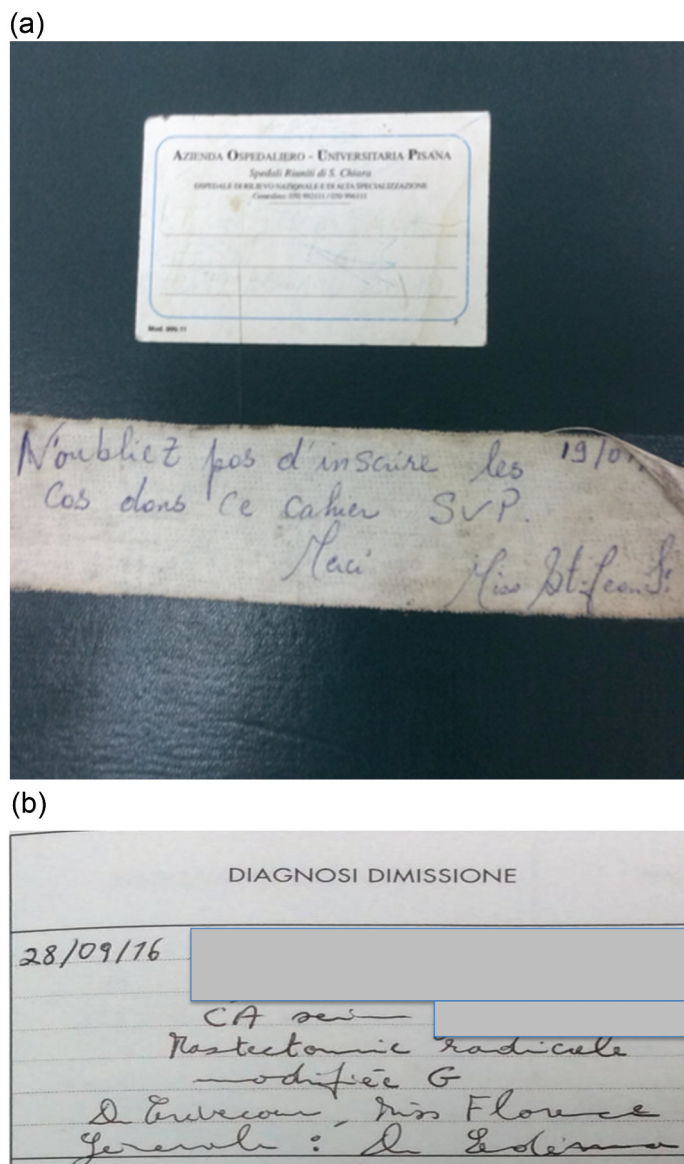 (a)
AZIENDA OSPEDALIERO - UNIVERSITARIA PISANA
Spedali Riuniti di S. Chiara
OSPEDALE DI RILIEVO NAZIONALE E DI ALTA SPECIALIZZAZIONE
Centralino:
Mod.
N'oubliez pas d'inscrire les 19/0
cas dans ce cahier SVP.
Merci Miss St-Jean
(b)
DIAGNOSI DIMISSIONE
28/09/16
CA sein
Mastectomie radicale
modifiée G
Dr Miss Florence
: Dr